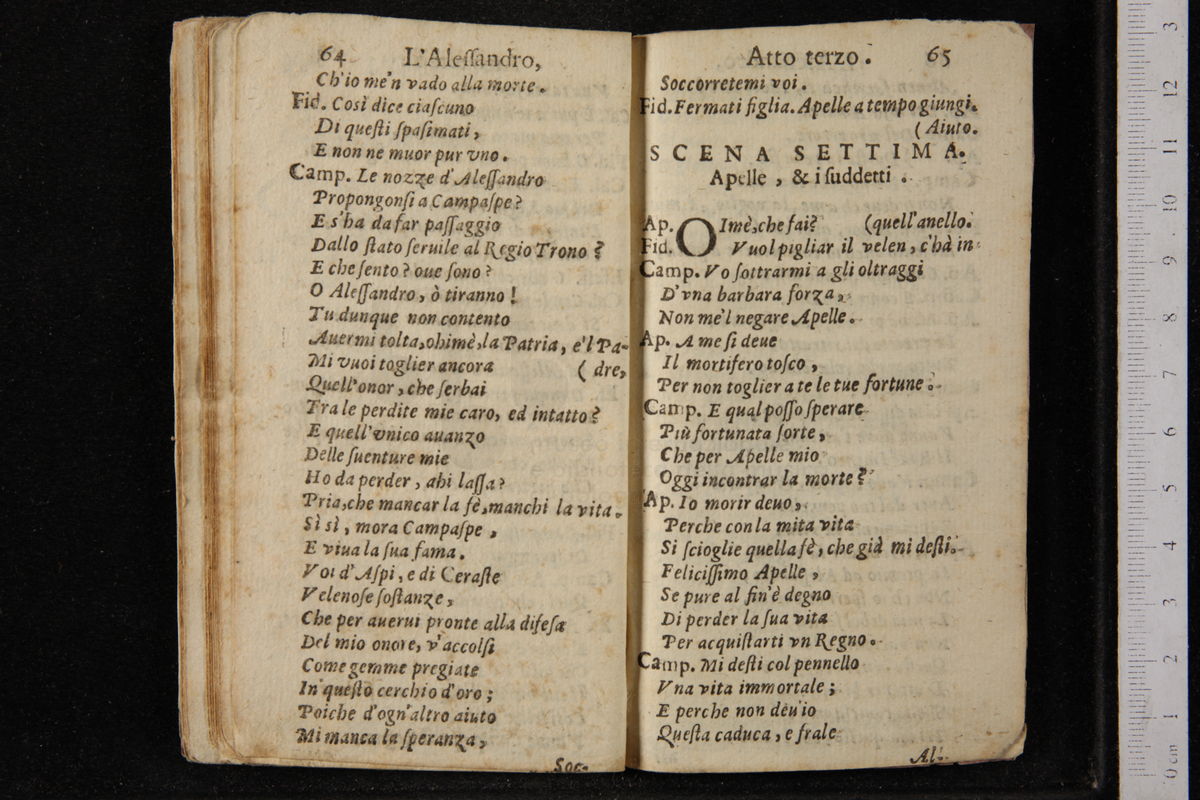 64 L'Aleſſandro,
Ch'io me'n vado alla morte.
Fid. Così dice ciaſcuno
Di queſti ſpaſimati,
E non ne muor pur vno.
Camp. Le nozze d'Aleſſandro
Propongonſi a Campaſpe?
E s'ha da far paſſaggio
Dallo ſtato ſeruile al Regio Trono?
E che ſento? oue ſono?
O Aleſſandro, ò tiranno!
Tu dunque non contento
Auermi tolta, ohimè, la Patria, e'l Pa-
Mi vuoi toglier ancora (dre,
Quell'onor, che ſerbai
Tra le perdite mie caro, ed intatto?
E quell'vnico auanzo
Delle ſuenture mie
Ho da perder, ahi laſſa?
Pria, che mancar la fè, manchi la vita.
Sì sì, mora Campaſpe,
E viua la ſua fama.
Voi d'Aſpi, e di Ceraſte
Velenoſe ſoſtanze,
Che per auerui pronte alla difeſa
Del mio onore, v'accolſi
Come gemme pregiate
In queſto cerchio d'oro;
Poiche d'ogn'altro aiuto
Mi manca la ſperanza,
Soc-
Atto terzo. 65
Soccorretemi voi.
Fid. Fermati figlia. Apelle a tempo giungi.
(Aiuto.
SCENA SETTIMA.
Apelle, & i ſuddetti.
Ap. OImè, che fai? (quell'anello.
Fid. Vuol pigliar il velen, c'hà in
Camp. Vo ſottrarmi a gli oltraggi
D'vna barbara forza,
Non me'l negare Apelle.
Ap. A me ſi deue
Il mortifero toſco,
Per non toglier a te le tue fortune.
Camp. E qual poſſo ſperare
Più fortunata ſorte,
Che per Apelle mio
Oggi incontrar la morte?
Ap. Io morir deuo,
Perche con la mita vita
Si ſcioglie quella fè, che già mi deſti.
Feliciſſimo Apelle,
Se pure al fin'è degno
Di perder la ſua vita
Per acquiſtarti vn Regno.
Camp. Mi deſti col pennello
Vna vita immortale;
E perche non deu'io
Queſta caduca, e frale
Al-
0 cm 1 2 3 4 5 6 7 8 9 10 11 12
3